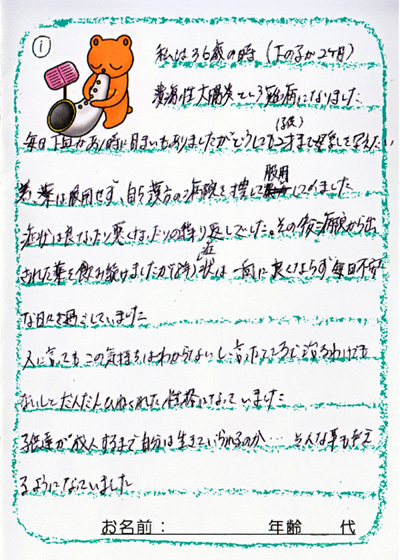 ①
私は36歳の時（上の子が2ヶ月）
潰瘍性大腸炎という難病になりました
毎日下血があり時に目まいもありましたがどうしても2才まで母乳を与えたい
（3人）
薬は服用せず、自ら漢方の病院を捜して服用していました
症状は良くなったり悪くなったりの繰り返しでした。その後、病院から出
された薬を飲み続けましたが症状は一向に良くならず毎日不安
な日々を過ごしていました
人に言ってもこの気持ちはわからないし言ったところで治るわけでも
ないしとだんだんひねくれた性格になっていました
子供達が成人するまで自分は生きていられるのか… そんな事も考え
るようになっていました
お名前： 年齢 代